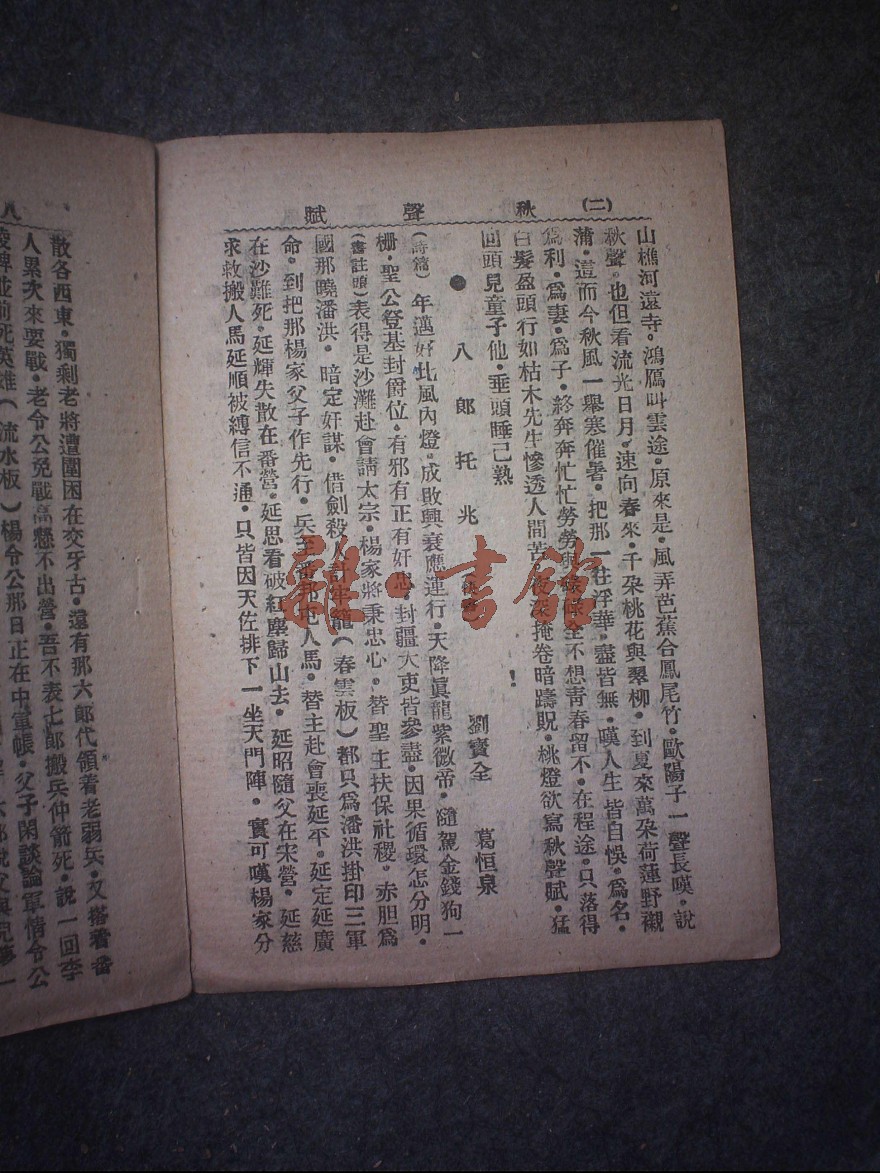 秋聲賦 (二)
山樵河遠寺•鴻鴈叫雲途•原來是•風弄芭蕉合鳳尾竹•歐陽子一聲長嘆•說
秋聲•也但看流光日月•速向春來•千朶桃花與翠柳•到夏來萬朶荷蓮野襯
蒲•這而今秋風一舉寒催暑•把那一往浮華•盡皆無•嘆人生皆自悞•爲名•
爲利•爲妻•爲子•終奔奔忙忙勞勞與碌碌全不想靑春留不•在程途•只落得
白髮盈頭行如枯木先生慘透人間苦•夜深掩卷暗躊貺•桃燈欲寫秋聲賦•猛
回頭見童子他•垂頭睡已熟
● 八郎托兆 劉寶全 葛恒泉
(詩篇) 年邁好比風內燈•成敗興衰應運行•天降眞龍紫微帝•隨駕金錢狗一
柵•聖公登基封爵位•有邪有正有奸忠•封疆大吏皆參盡•因果循環怎分明•
(書註頭)表得是沙灘赴會請太宗•楊家將秉忠心•替聖主扶保社稷•赤胆爲
國那曉潘洪•暗定奸謀•借劍殺人計牢籠(春雲板)都只爲潘洪掛印三軍
命•到把那楊家父子作先行•兵至番邦屯人馬•替主赴會喪延平•延定延廣
在沙灘死•延輝失散在番營•延思看破紅塵歸山去•延昭隨父在宋營•延慈
求救搬人馬延順被縛信不通•只皆因天佐排下一坐天門陣•實可嘆楊家分
八
散各西東•獨剩老將遭圍困在交牙古•還有那六郎代領着老弱兵•又搭着番
人累次來要戰•老令公免戰高懸不出營•吾不表七郎搬兵仲箭死•說一回李
陵碑並前死英雄(流水板)楊令公那日正在中軍帳•父子閑談論軍情令公
雜•書館